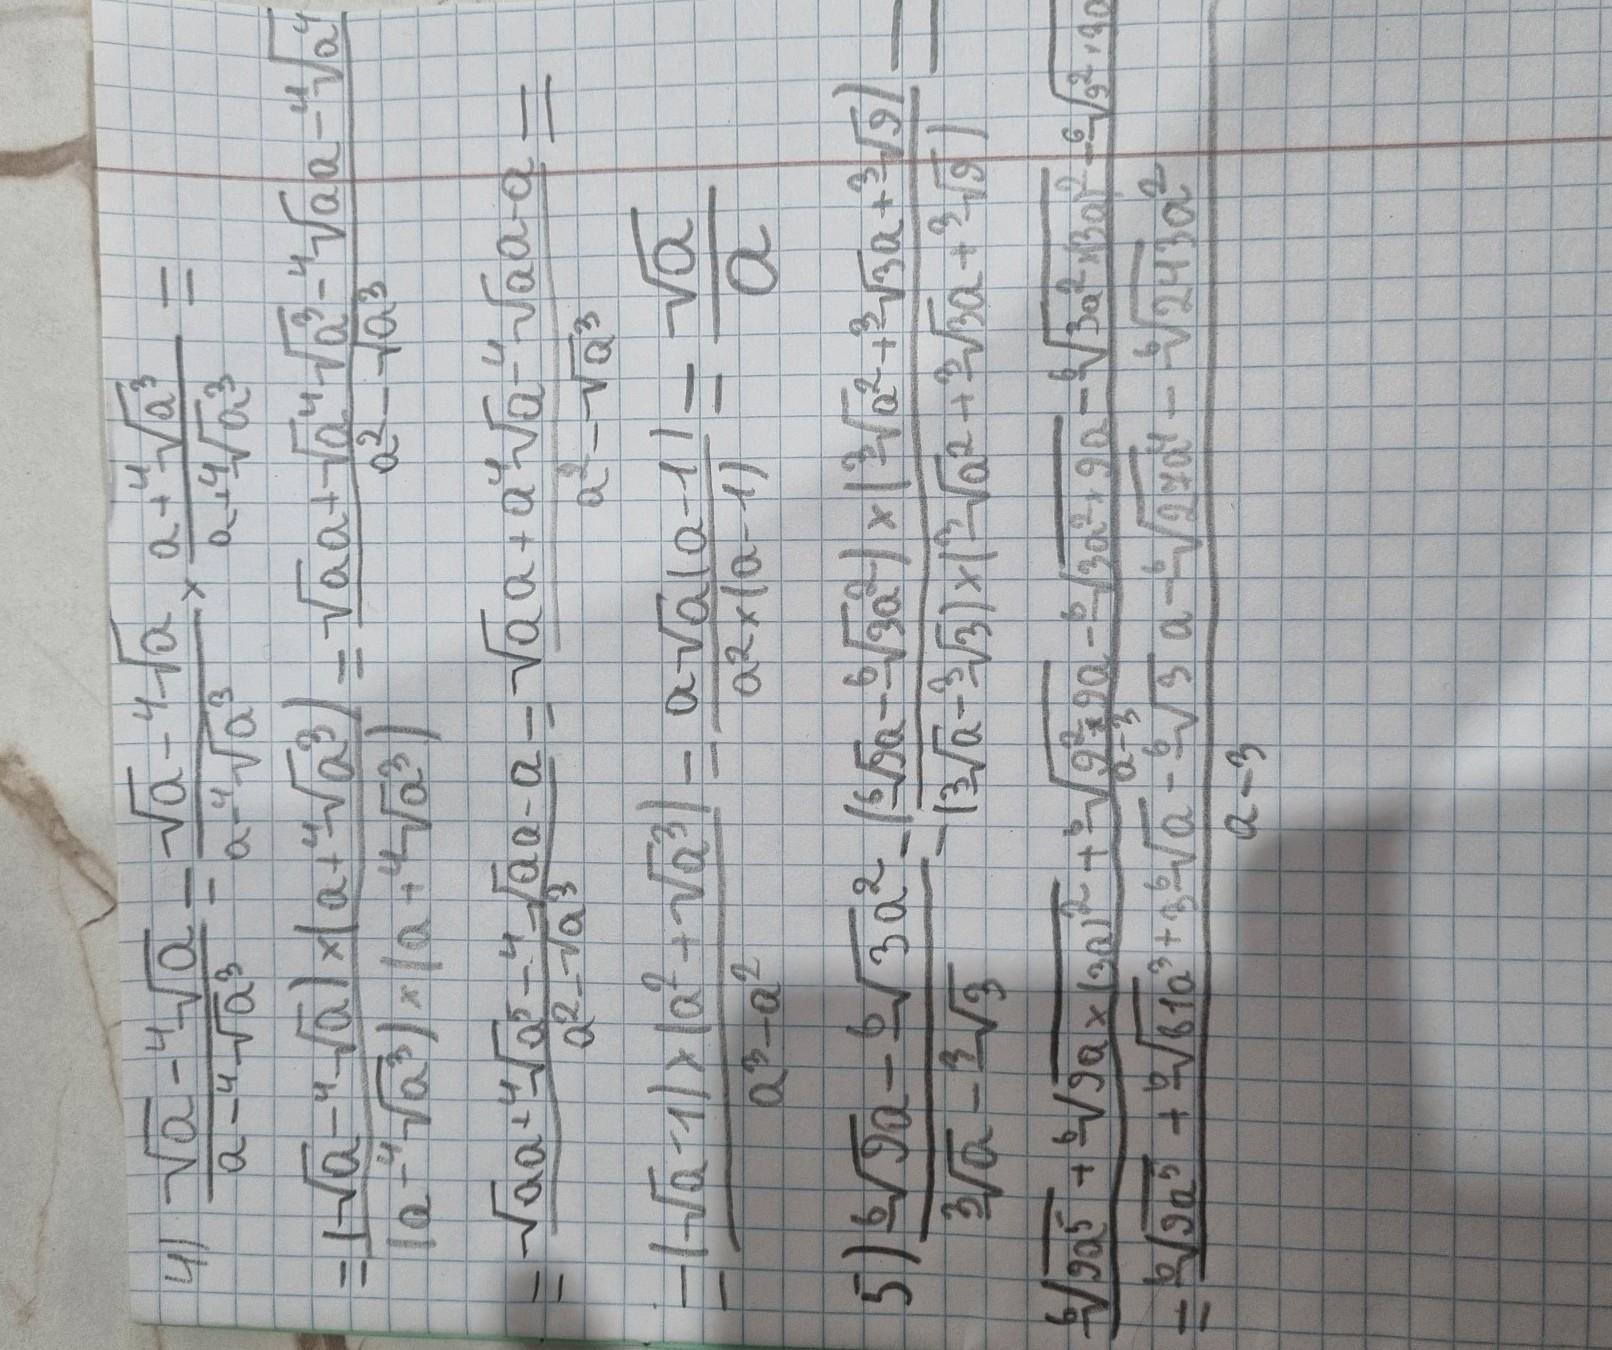 4) (√a - ⁴√a)/(a - ⁴√a³) = (√a - ⁴√a)/(a - ⁴√a³) × (a + ⁴√a³)/(a + ⁴√a³) =
= ((√a - ⁴√a) × (a + ⁴√a³))/((a - ⁴√a³) × (a + ⁴√a³)) = (√aa + √a ⁴√a³ - ⁴√aa - ⁴√a⁴)/(a² - √a³)
= (√aa + ⁴√a⁵ - ⁴√aa - a)/(a² - √a³) = (√aa + a⁴√a - ⁴√aa - a)/(a² - √a³) =
= ((√a - 1) × (a² + √a³))/(a³ - a²) = (a√a(a - 1))/(a² × (a - 1)) = √a/a
5) (⁶√9a - ⁶√3a²)/(³√a - ³√3) = ((⁶√9a - ⁶√3a²) × (³√a² + ³√3a + ³√9))/((³√a - ³√3) × (³√a² + ³√3a + ³√9)) =
(⁶√9a⁵ + ⁶√9a × (3a)² + ⁶√9² × 9a - ⁶√3a² × 9a - ⁶√3a² × (3a)² - ⁶√9² × 3a
a - 3
= (⁶√9a⁵ + ⁶√81a³ + 3⁶√a - ⁶√3 a - ⁶√27a⁴ - ⁶√243a²)/(a - 3)